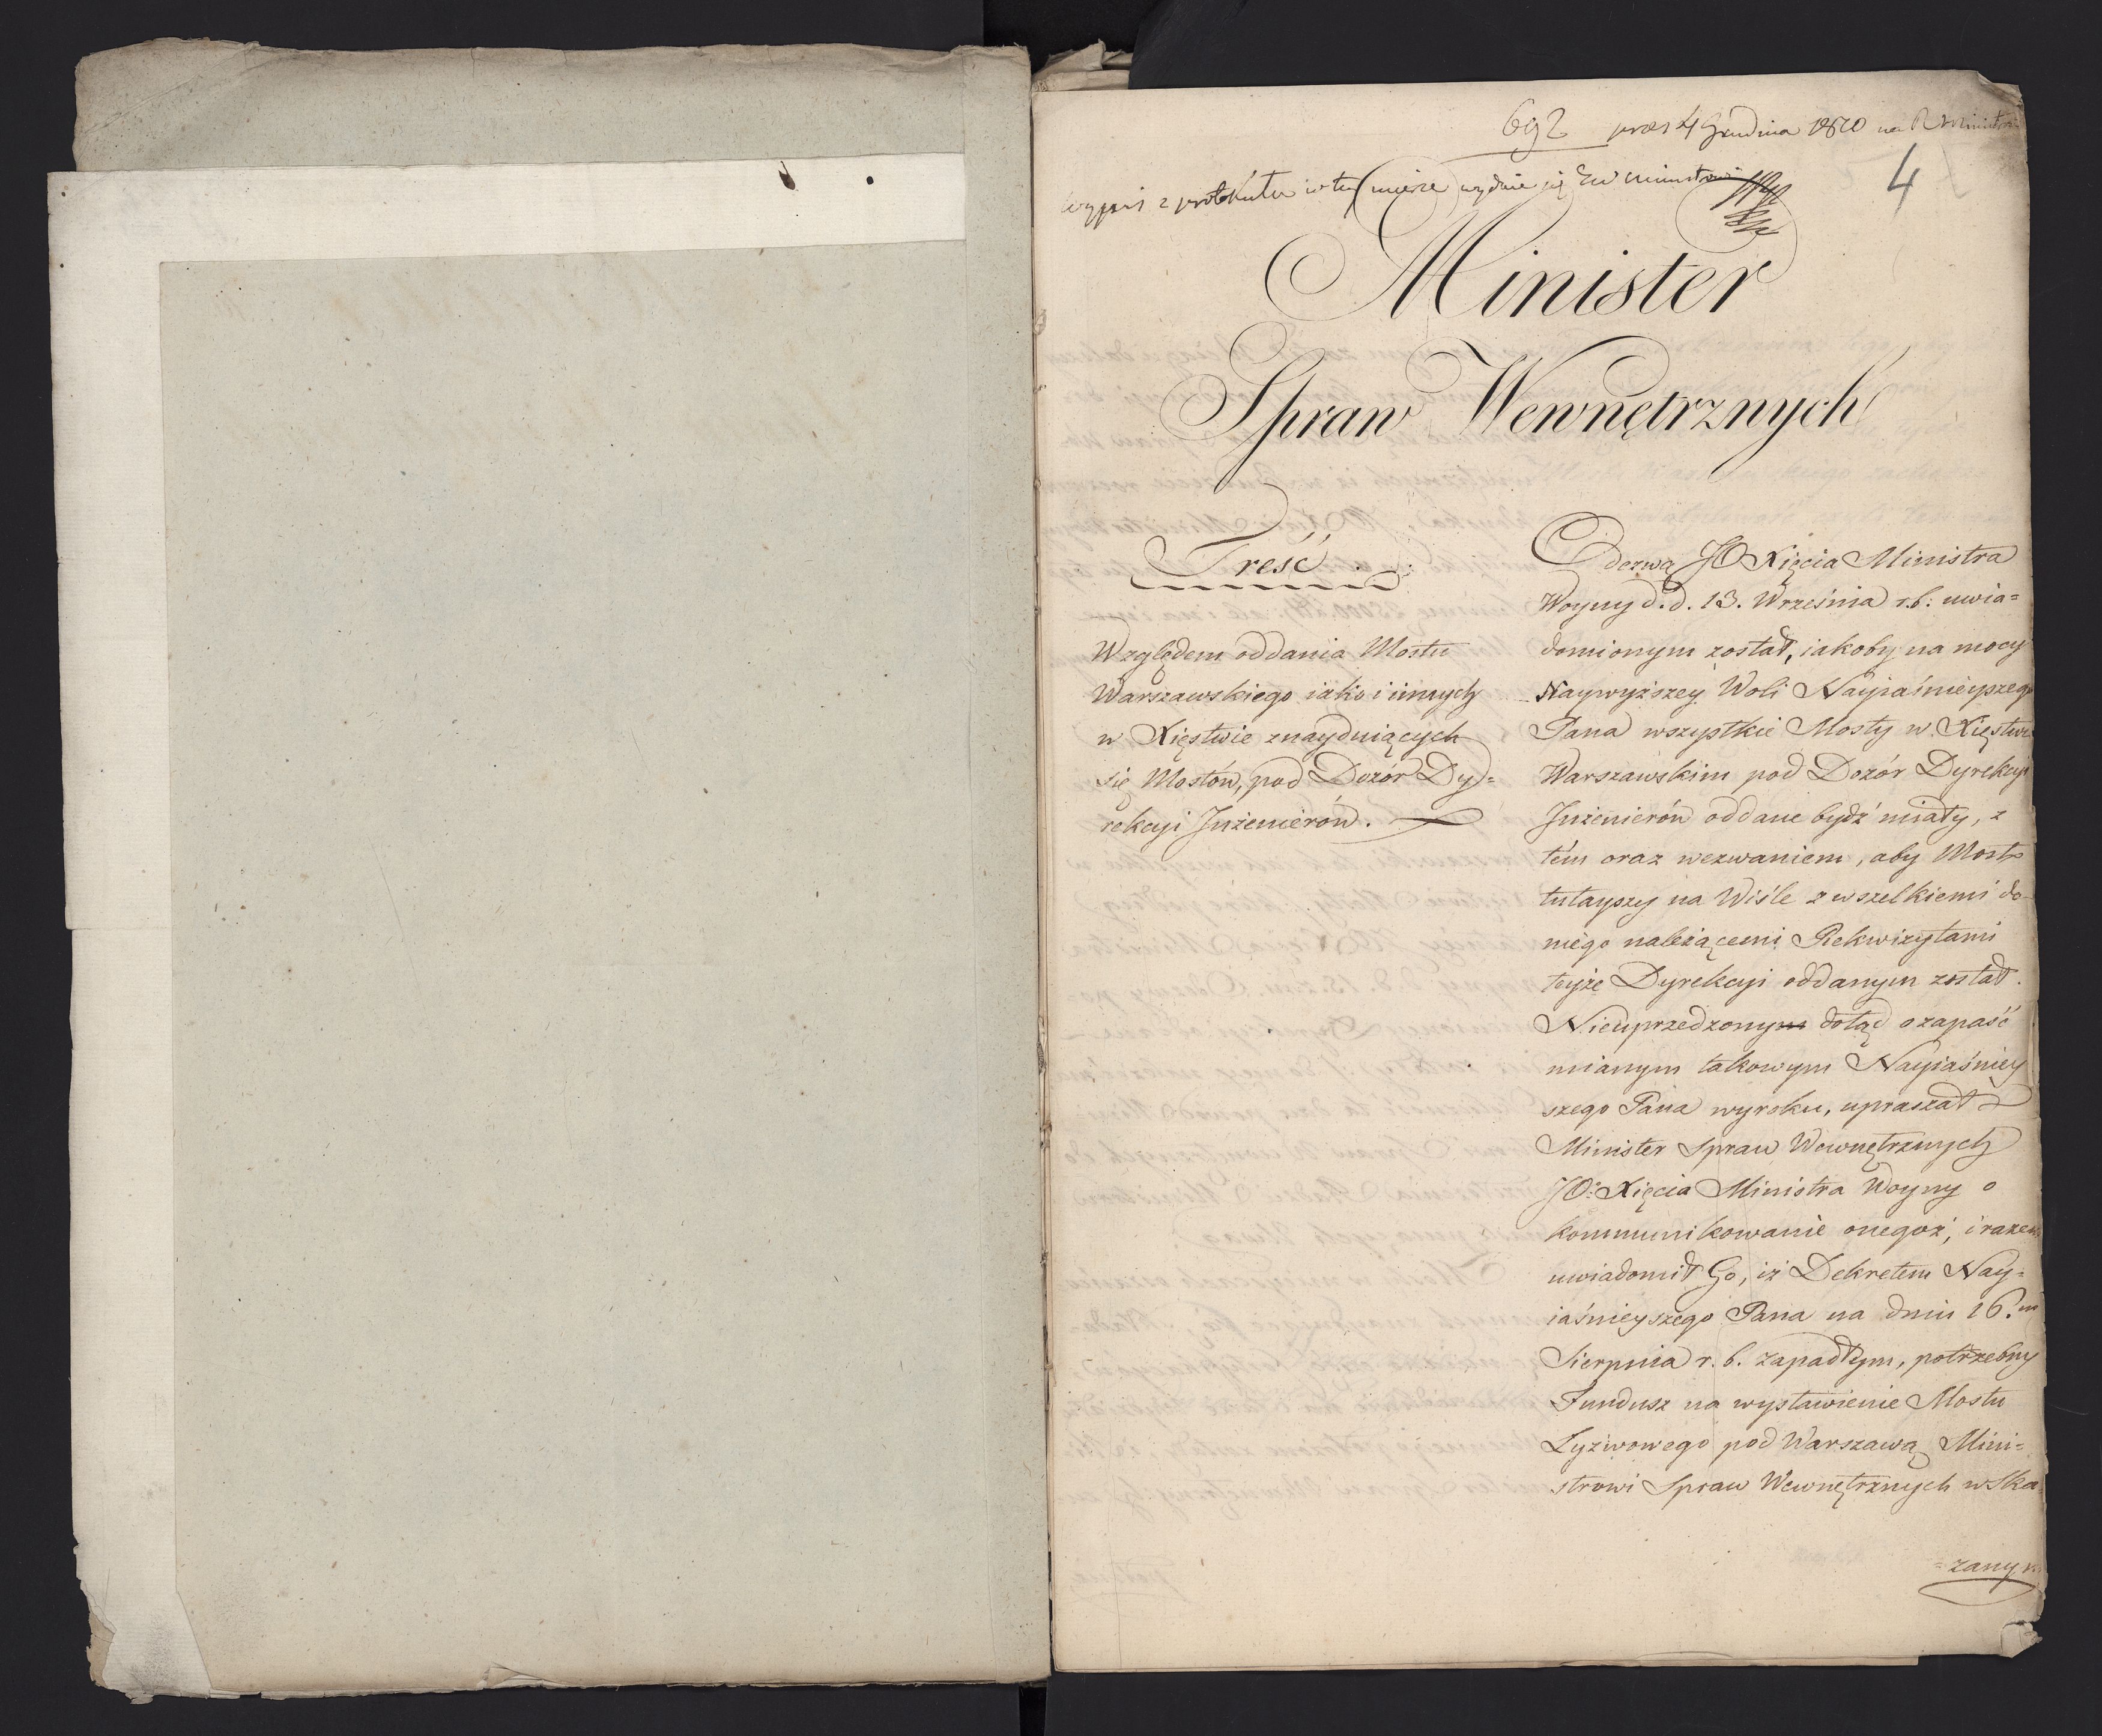 692 prez 4 Grudnia 1810 na R Ministrów
4
Wypis z protokułu w tey mierze wydaie się JW Ministrowi
Minister
Spraw Wewnętrznych
Treść
Względem oddania Mostu
Warszawskiego iako i innych
w Xięstwie znayduiących
się Mostów, pod Dozór Dy=
rekcyi Inżenierów.
Odezwą JO Xięcia Ministra
Woyny d. d. 13. Września r. b: uwia=
domionym został, iakoby na mocy
Naywyższey Woli Nayiaśnieyszego
Pana wszystkie Mosty w Xięstwie
Warszawskim pod Dozór Dyrekcyi
Inżenierów oddane bydź miały, z
tém oraz wezwaniem, aby Most
tutayszy na Wiśle z wszelkiemi do
niego należącemi Rekwizytami
teyże Dyrekcyi oddanym został.
Nieuprzedzonym dotąd o zapaść
mianym takowym Nayiaśniey
szego Pana wyroku, upraszał
Minister Spraw Wewnętrznych
JO: Xięcia Ministra Woyny o
kommunikowanie onegoż, i razem
uwiadomił Go, iż Dekretem Nay=
iaśnieyszego Pana na dniu 16.m
Sierpnia r. b. zapadłym, potrzebny
Fundusz na wystawienie Mostu
Łyżwowego pod Warszawą Mini=
strowi Spraw Wewnętrznych wska
=zanym